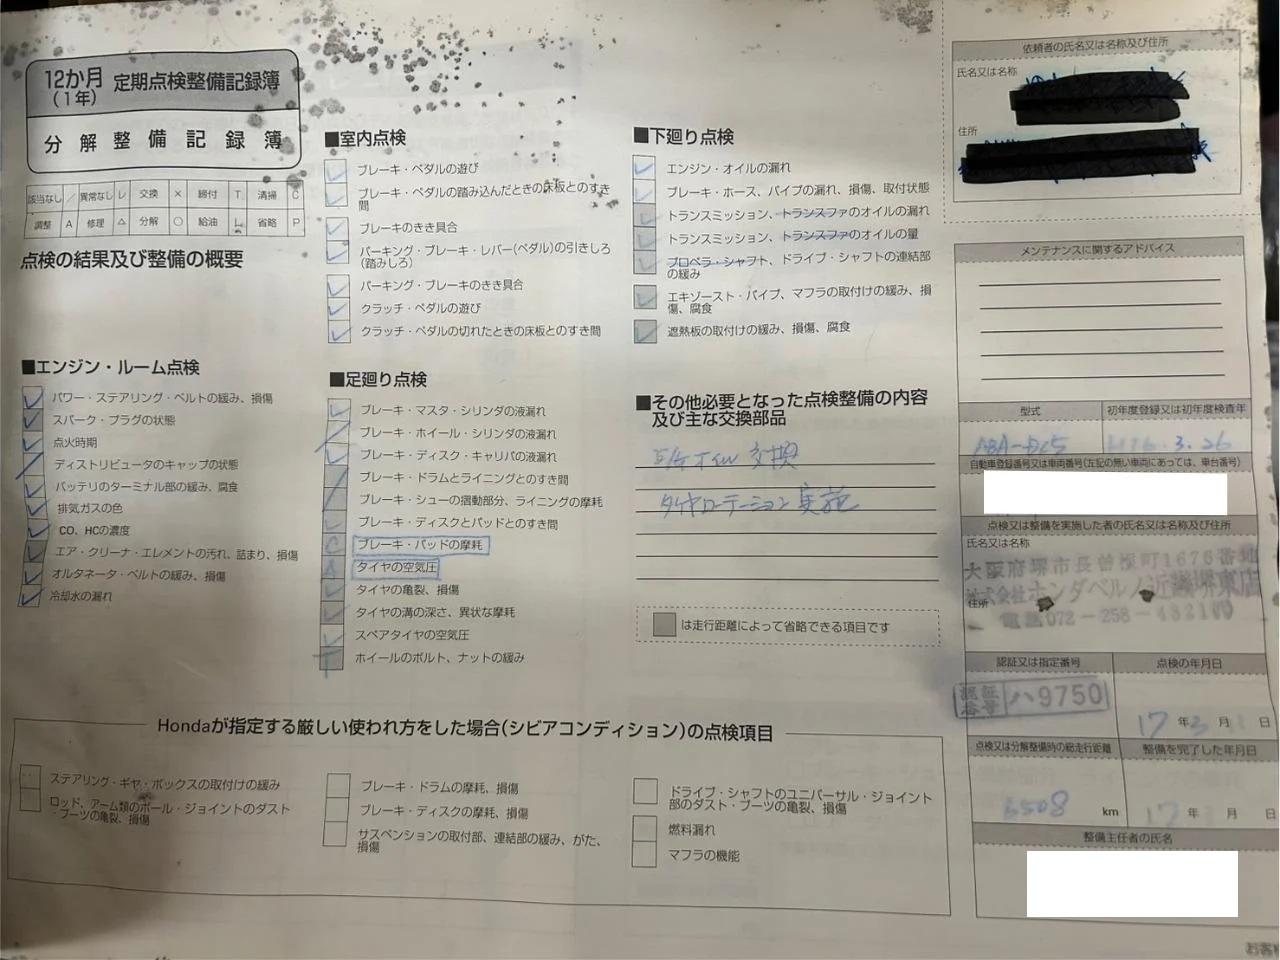 12か月
(1年)
定期点検整備記録簿
分解整備記録簿
該当なし / 異常なし レ 交換 × 締付 T 清掃 C
調整 A 修理 △ 分解 ○ 給油 L 省略 P
点検の結果及び整備の概要
■エンジン・ルーム点検
パワー・ステアリング・ベルトの緩み、損傷
スパーク・プラグの状態
点火時期
ディストリビュータのキャップの状態
バッテリのターミナル部の緩み、腐食
排気ガスの色
CO、HCの濃度
エア・クリーナ・エレメントの汚れ、詰まり、損傷
オルタネータ・ベルトの緩み、損傷
冷却水の漏れ
■室内点検
ブレーキ・ペダルの遊び
ブレーキ・ペダルの踏み込んだときの床板とのすき
間
ブレーキのきき具合
パーキング・ブレーキ・レバー(ペダル)の引きしろ
(踏みしろ)
パーキング・ブレーキのきき具合
クラッチ・ペダルの遊び
クラッチ・ペダルの切れたときの床板とのすき間
■足廻り点検
ブレーキ・マスタ・シリンダの液漏れ
ブレーキ・ホイール・シリンダの液漏れ
ブレーキ・ディスク・キャリパの液漏れ
ブレーキ・ドラムとライニングとのすき間
ブレーキ・シューの摺動部分、ライニングの摩耗
ブレーキ・ディスクとパッドとのすき間
ブレーキ・パッドの摩耗
タイヤの空気圧
タイヤの亀裂、損傷
タイヤの溝の深さ、異状な摩耗
スペアタイヤの空気圧
ホイールのボルト、ナットの緩み
■下廻り点検
エンジン・オイルの漏れ
ブレーキ・ホース、パイプの漏れ、損傷、取付状態
トランスミッション、トランスファのオイルの漏れ
トランスミッション、トランスファのオイルの量
プロペラ・シャフト、ドライブ・シャフトの連結部
の緩み
エキゾースト・パイプ、マフラの取付けの緩み、損
傷、腐食
遮熱板の取付けの緩み、損傷、腐食
■その他必要となった点検整備の内容
及び主な交換部品
オイル 交換
タイヤローテーション 実施
は走行距離によって省略できる項目です
Hondaが指定する厳しい使われ方をした場合(シビアコンディション)の点検項目
ステアリング・ギヤ・ボックスの取付けの緩み
ロッド、アーム類のボール・ジョイントのダスト
・ブーツの亀裂、損傷
ブレーキ・ドラムの摩耗、損傷
ブレーキ・ディスクの摩耗、損傷
サスペンションの取付部、連結部の緩み、がた、
損傷
ドライブ・シャフトのユニバーサル・ジョイント
部のダスト・ブーツの亀裂、損傷
燃料漏れ
マフラの機能
依頼者の氏名又は名称及び住所
氏名又は名称
住所
メンテナンスに関するアドバイス
型式
初年度登録又は初年度検査年
ABA-DC5
H16.3.26
自動車登録番号又は車両番号(左記の無い車両にあっては、車台番号)
点検又は整備を実施した者の氏名又は名称及び住所
氏名又は名称
大阪府堺市長曽根町1676番地
住所
株式会社ホンダベルノ近畿堺東店
電話072-258-4321㈹
認証又は指定番号
点検の年月日
認証番号 ハ9750
17年3月1日
点検又は分解整備時の総走行距離
整備を完了した年月日
6508 km
17年 月 日
整備主任者の氏名
お客様